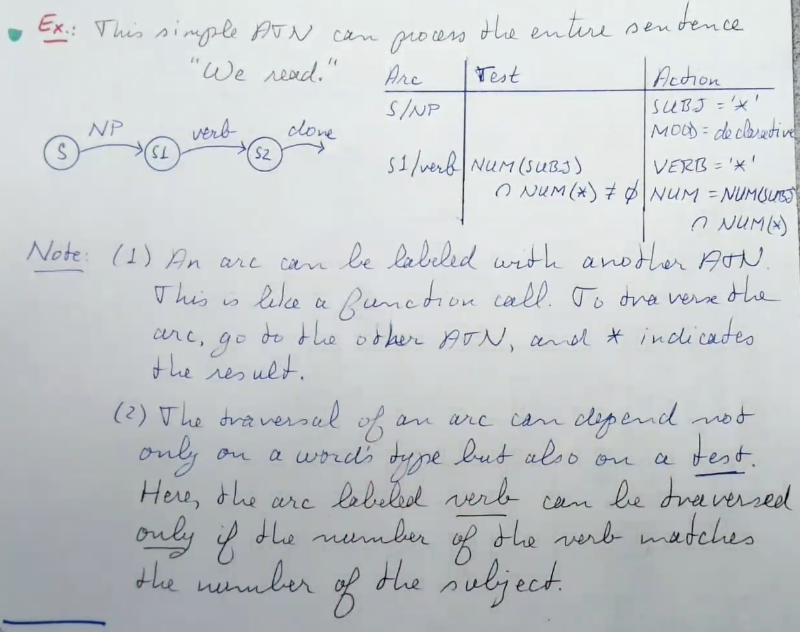 Ex.: This simple ATN can process the entire sentence
"We read."
Arc Test Action
S/NP SUBJ = '*'
MOOD = declarative
NP verb done
S S1 S2
S1/verb NUM(SUBJ) VERB = '*'
∩ NUM(*) ≠ ∅ NUM = NUM(SUBJ)
∩ NUM(*)
Note: (1) An arc can be labeled with another ATN.
This is like a function call. To traverse the
arc, go to the other ATN, and * indicates
the result.
(2) The traversal of an arc can depend not
only on a word's type but also on a test.
Here, the arc labeled verb can be traversed
only if the number of the verb matches
the number of the subject.